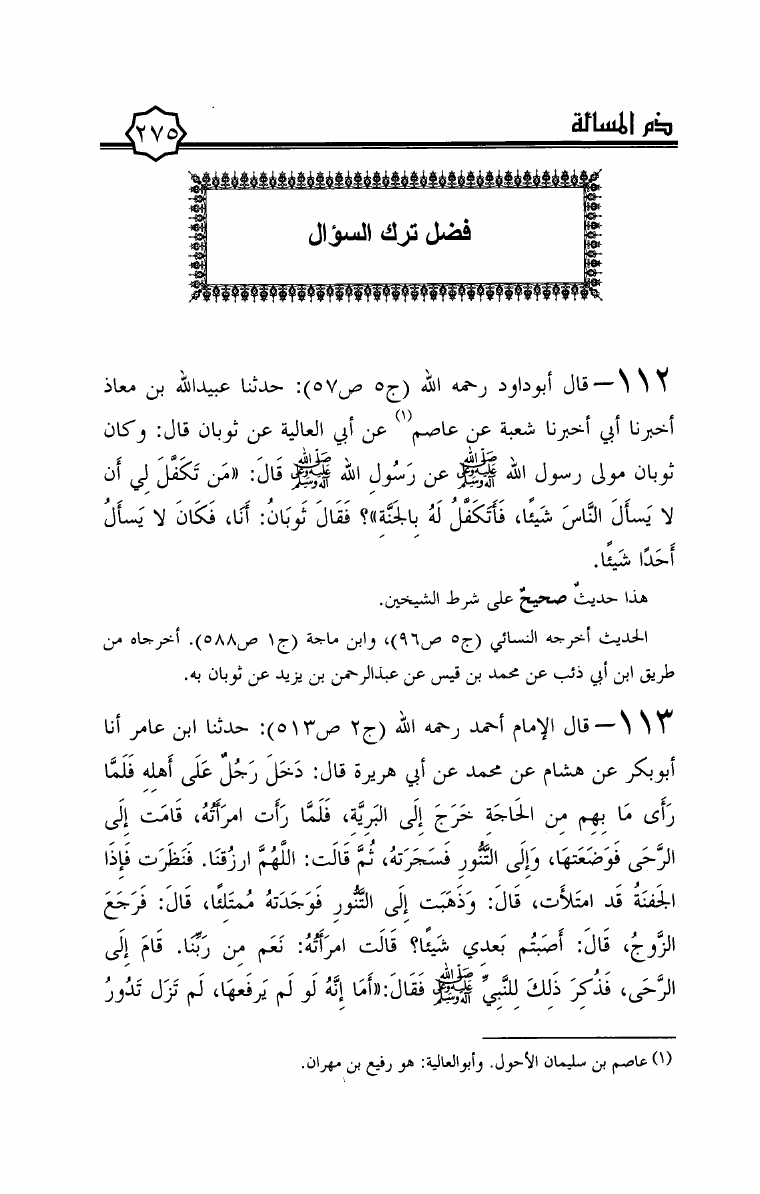 ذم المسألة
٢٧٥
فضل ترك السؤال
١١٢- قال أبوداود رحمه الله (ج٥ ص٥٧): حدثنا عبيدالله بن معاذ
أخبرنا أبي أخبرنا شعبة عن عاصم(١) عن أبي العالية عن ثوبان قال: وكان
ثوبان مولى رسول الله ﷺ عن رَسُولِ الله ﷺ قَالَ: «مَن تَكَفَّلَ لِي أَن
لا يَسأَلَ النَّاسَ شَيئًا، فَأَتَكَفَّلُ لَهُ بِالجَنَّةِ»؟ فَقَالَ ثَوبَانُ: أَنَا، فَكَانَ لا يَسأَلُ
أَحَدًا شَيئًا.
هذا حديثٌ صحيحٌ على شرط الشيخين.
الحديث أخرجه النسائي (ج٥ ص٩٦)، وابن ماجة (ج١ ص٥٨٨). أخرجاه من
طريق ابن أبي ذئب عن محمد بن قيس عن عبدالرحمن بن يزيد عن ثوبان به.
١١٣- قال الإمام أحمد رحمه الله (ج٢ ص٥١٣): حدثنا ابن عامر أنا
أبوبكر عن هشام عن محمد عن أبي هريرة قال: دَخَلَ رَجُلٌ عَلَى أَهلِهِ فَلَمَّا
رَأَى مَا بِهِم مِن الحَاجَةِ خَرَجَ إِلَى البَرِيَّةِ، فَلَمَّا رَأَت امرَأَتُهُ، قَامَت إِلَى
الرَّحَى فَوَضَعَتهَا، وَإِلَى التَّنُّورِ فَسَجَرَتهُ، ثُمَّ قَالَت: اللَّهُمَّ ارزُقنَا. فَنَظَرَت فَإِذَا
الجَفنَةُ قَد امتَلأَت، قَالَ: وَذَهَبَت إِلَى التَّنُّورِ فَوَجَدَتهُ مُمتَلِئًا، قَالَ: فَرَجَعَ
الزَّوجُ، قَالَ: أَصَبتُم بَعدِي شَيئًا؟ قَالَت امرَأَتُهُ: نَعَم مِن رَبِّنَا. قَامَ إِلَى
الرَّحَى، فَذُكِرَ ذَلِكَ لِلنَّبِيِّ ﷺ فَقَالَ:«أَمَا إِنَّهُ لَو لَم يَرفَعهَا، لَم تَزَل تَدُورُ
(١) عاصم بن سليمان الأحول. وأبوالعالية: هو رفيع بن مهران.